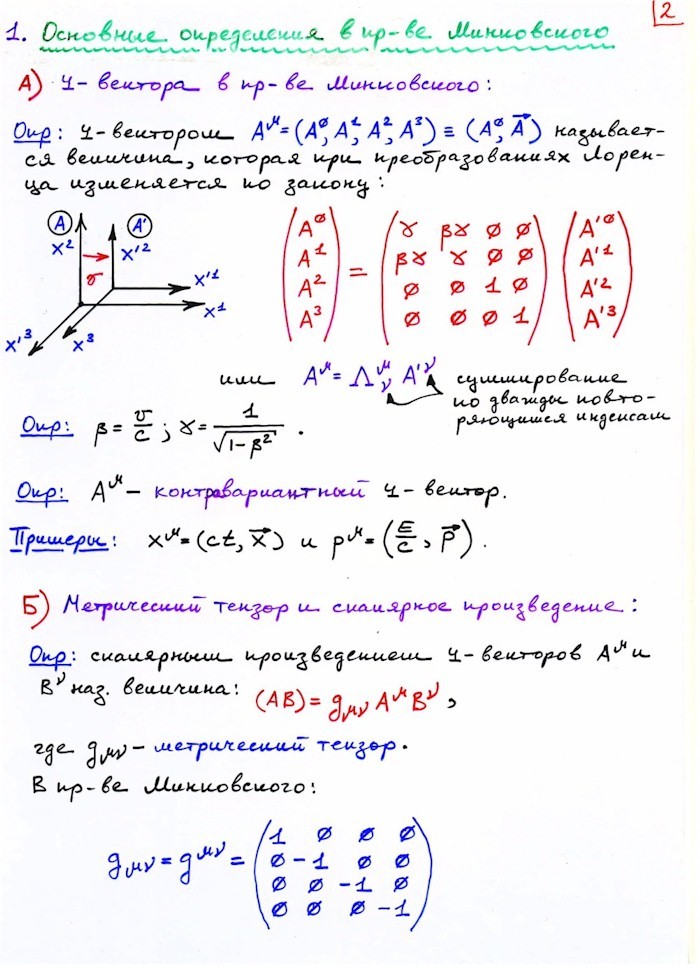 2
1. Основные определения в пр-ве Минковского
А) 4-вектора в пр-ве Минковского:
Опр: 4-вектором A^μ = (A^0, A^1, A^2, A^3) ≡ (A^0, A⃗) называет-
ся величина, которая при преобразованиях Лорен-
ца изменяется по закону:
A A'
x^2 x'^2
v
x'^1
x^1
x'^3 x^3
(A^0) (γ βγ 0 0) (A'^0)
(A^1) = (βγ γ 0 0) (A'^1)
(A^2) (0 0 1 0) (A'^2)
(A^3) (0 0 0 1) (A'^3)
или A^μ = Λ^μ_ν A'^ν суммирование
по дважды повто-
ряющимся индексам
Опр: β = v/c ; γ = 1/√(1-β^2) .
Опр: A^μ – контравариантный 4-вектор.
Примеры: x^μ = (ct, x⃗) и p^μ = (E/c, p⃗).
Б) Метрический тензор и скалярное произведение:
Опр: скалярным произведением 4-векторов A^μ и
B^ν наз. величина: (AB) = g_μν A^μ B^ν,
где g_μν – метрический тензор.
В пр-ве Минковского:
g_μν = g^μν = (1 0 0 0)
(0 -1 0 0)
(0 0 -1 0)
(0 0 0 -1)